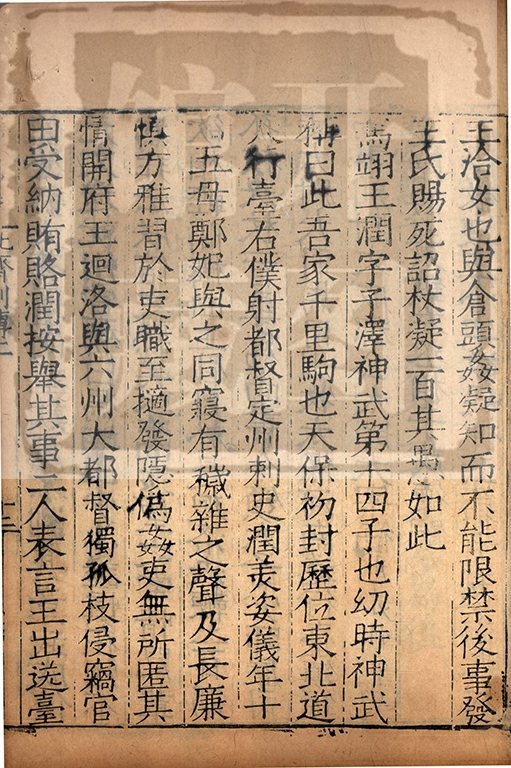 王洽女也與倉頭姦疑知而不能限禁後事發
王氏賜死詔杖疑一百其愚如此
馮翊王潤字子澤神武第十四子也幼時神武
稱曰此吾家千里駒也天保初封歷位東北道
行臺右僕射都督定州刺史潤美姿儀年十
五母鄭妃與之同寢有穢雜之聲及長廉
慎方雅習於吏職至擿發隱偽姦吏無所匿其
情開府王迴洛與六州大都督獨孤枝侵竊官
田受納賄賂潤按舉其事二人表言王出送臺